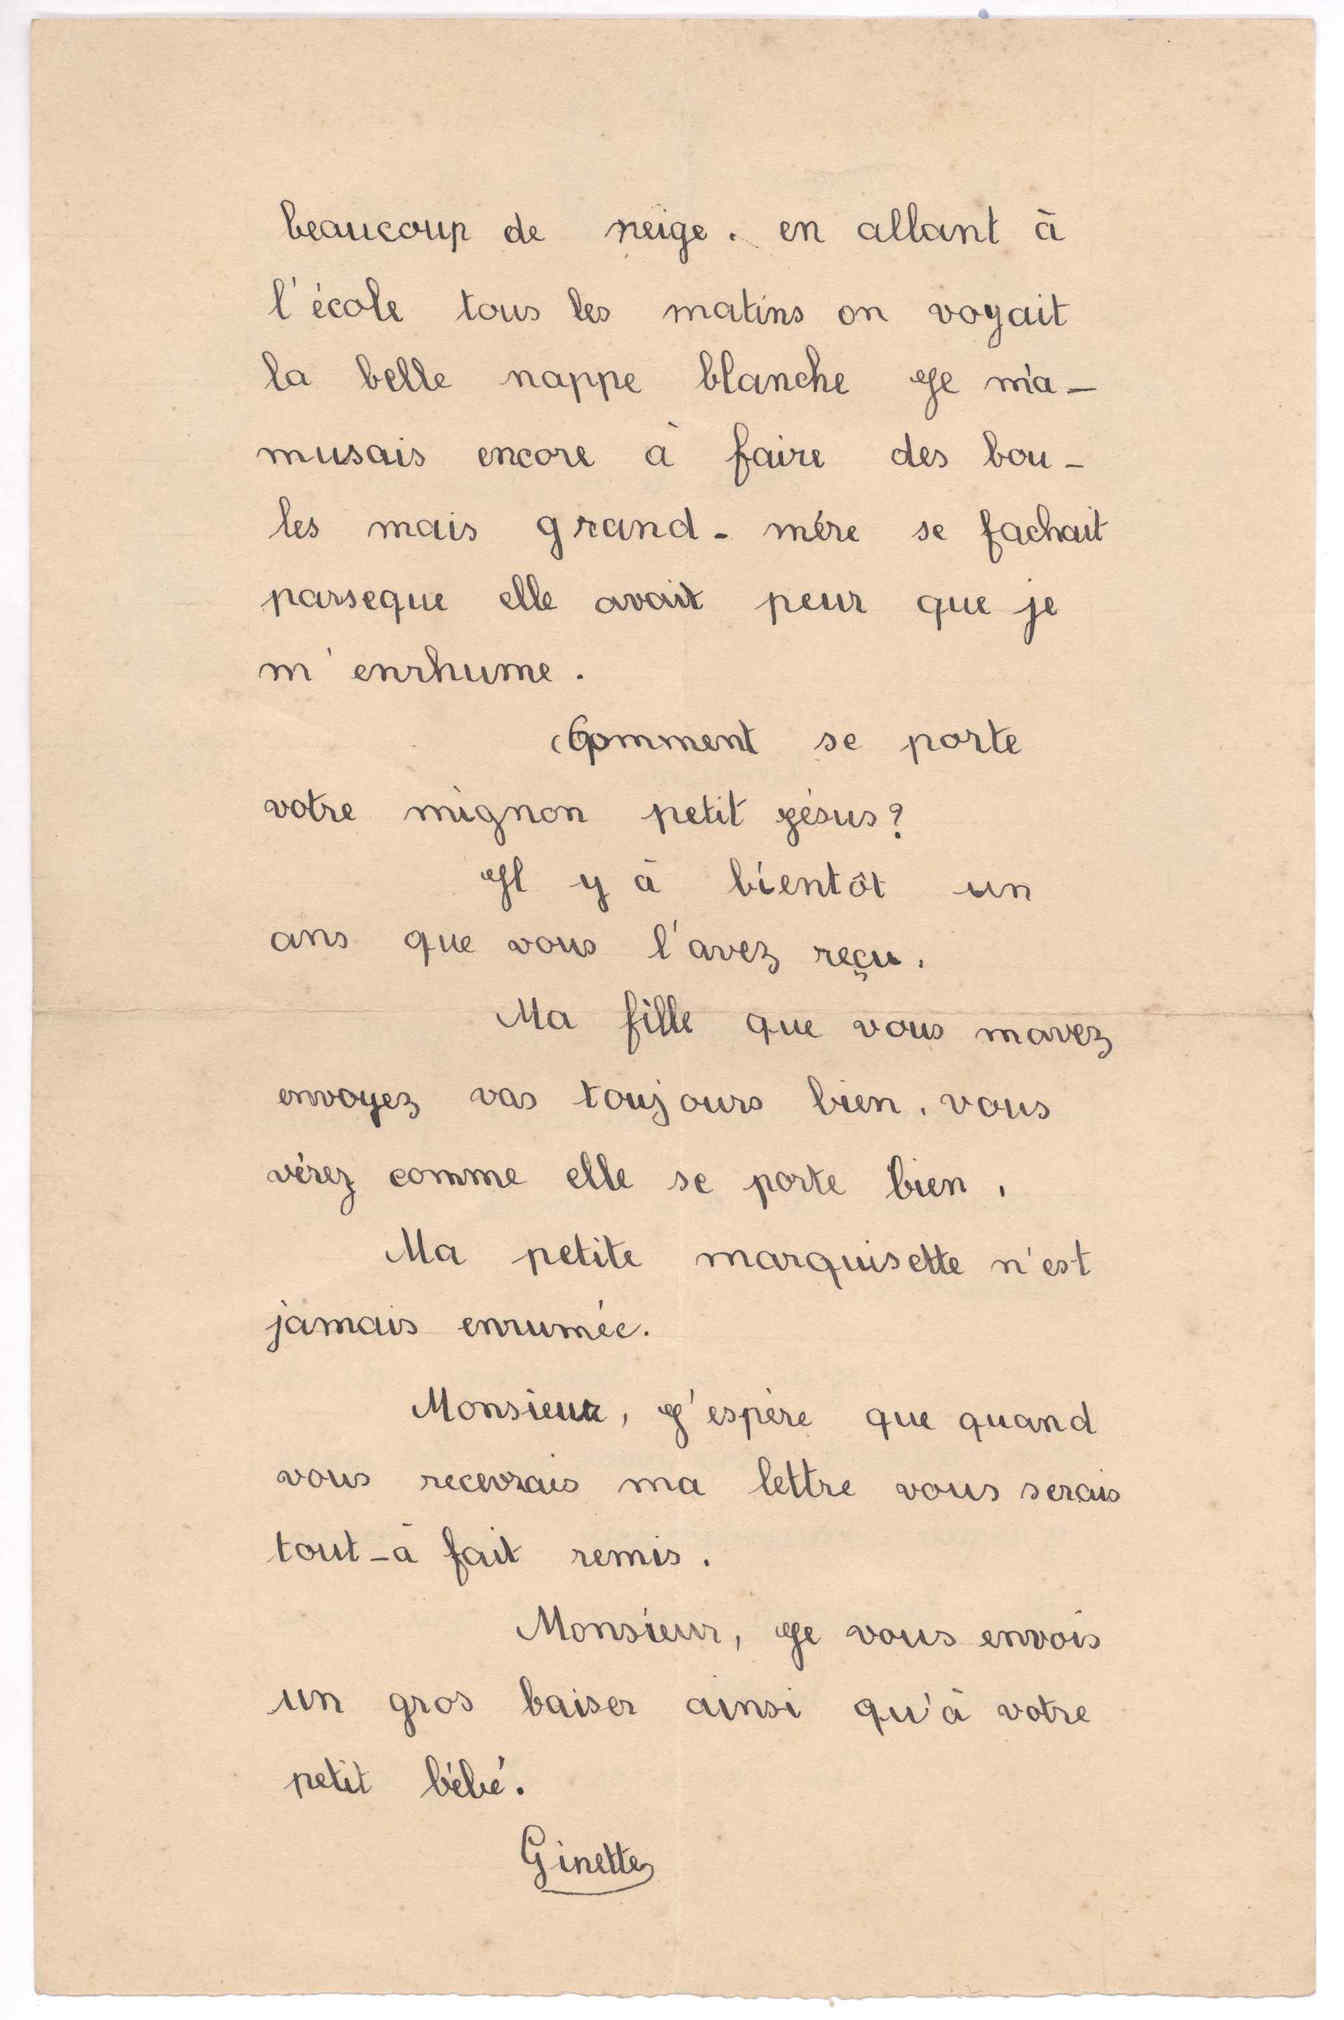 beaucoup de neige. en allant à
l'école tous les matins on voyait
la belle nappe blanche Je m'a-
musais encore à faire des bou-
les mais grand-mére se fachait
parseque elle avait peur que je
m'enrhume.
Comment se porte
votre mignon petit Jésus?
Il y à bientôt un
ans que vous l'avez reçu.
Ma fille que vous mavez
envoyez vas toujours bien. vous
vérez comme elle se porte bien.
Ma petite marquisette n'est
jamais enrumée.
Monsieur, J'espère que quand
vous recevrais ma lettre vous serais
tout-à fait remis.
Monsieur, Je vous envois
un gros baiser ainsi qu'à votre
petit bébé.
Ginette